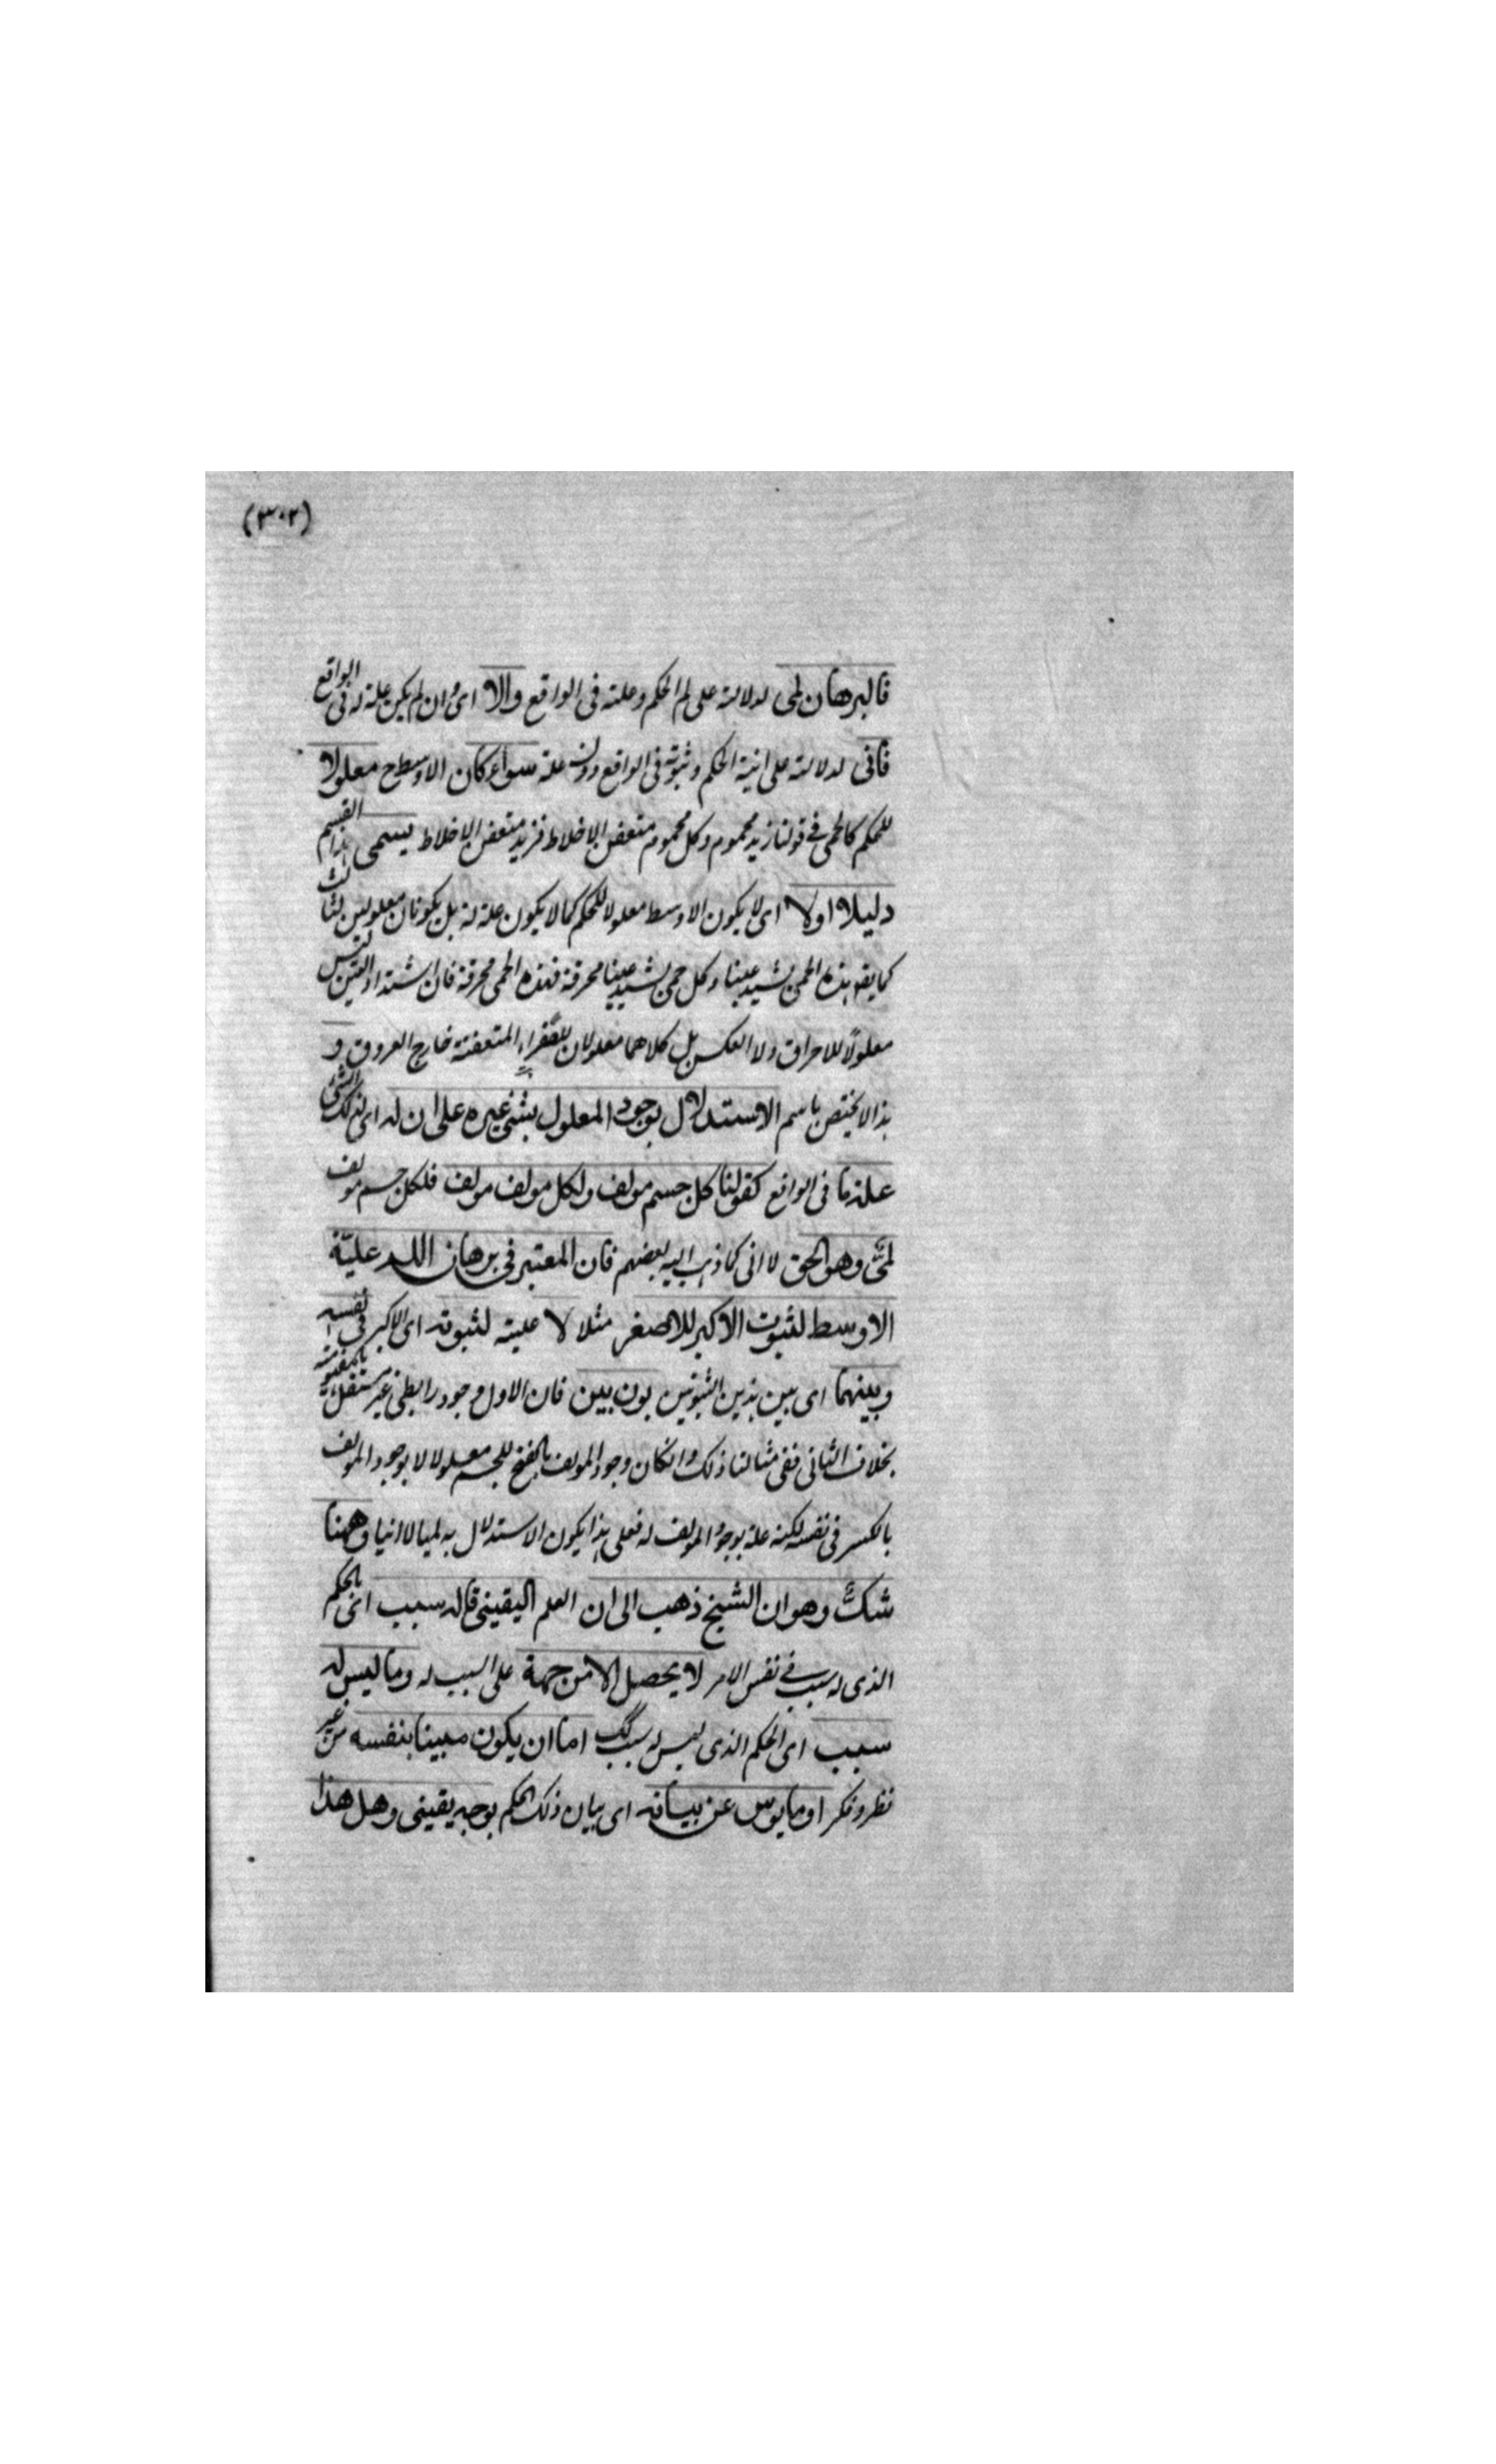 (٣٠٢)
فالبرهان لمى لدلالته على لم الحكم وعلته فى الواقع والا اى وان لم يكن علة له فى الواقع
فانى لدلالته على انية الحكم وثبوته فى الواقع دون علته سواء كان الاوسط ح معلولا
للحكم كالحمى فى قولنا زيد محموم وكل محموم متعفن الاخلاط فزيد متعفن الاخلاط يسمى هذا القسم
دليلا اولا اى لا يكون الاوسط معلولا للحكم كما لا يكون علة له بل يكونان معلولين لثالث
كما يقو هذه الحمى تشتد غبا وكل حمى تشتد غبا محرقة فهذه الحمى محرقة فان اشتداد الغب ليس
معلولا للاحراق ولا العكس بل كلاهما معلولان للصفراء المتعفنة خارج العروق و
هذا لا يختص باسم الاستدلال بوجود المعلول بشئ غيره على ان له اى لذلك الشئ
علة ما فى الواقع كقولنا كل جسم مولف ولكل مولف مولف فلكل جسم مولف
لمى وهو الحق لا انى كما ذهب اليه بعضهم فان المعتبر فى برهان اللم علية
الاوسط لثبوت الاكبر للاصغر مثلا لا علية لثبوته اى الاكبر فى نفسه
وبينهما اى بين هذين الثبوتين بون بين فان الاول وجود رابطى غير مستقل بالمفهومية
بخلاف الثانى ففى مثالنا ذلك وانكان وجود المولف بالفتح للجسم معلولا لا بوجود المولف
بالكسر فى نفسه لكنه علة بوجود المولف له فعلى هذا يكون الاستدلال به لميا لا انيا وههنا
شك وهو ان الشيخ ذهب الى ان العلم اليقينى بما له سبب اى بالحكم
الذى له سبب فى نفس الامر لا يحصل الا من جهة على السبب له وما ليس له
سبب اى الحكم الذى ليس له سبب اما ان يكون مبينا بنفسه من غير
نظر وفكر او مايوس عن بيانه اى بيان ذلك الحكم بوجه يقينى وهل هذا